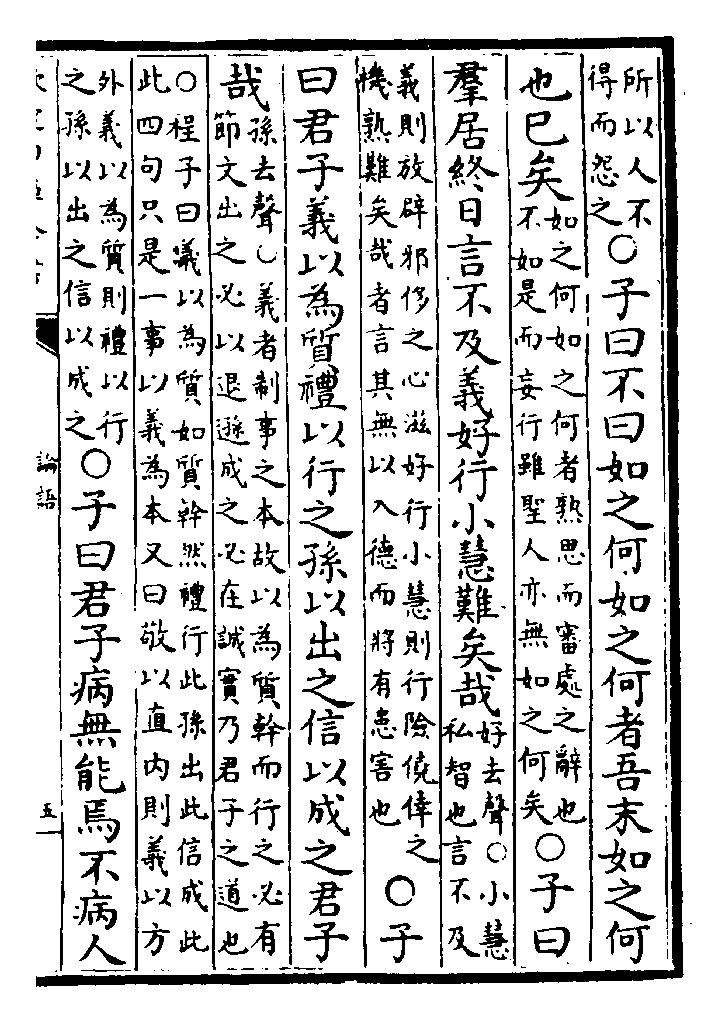 所以人不得而怨之○子曰不曰如之何如之何者吾末如之何
也已矣如之何如之何者熟思而審處之辭也不如是而妄行雖聖人亦無如之何矣○子曰
羣居終日言不及義好行小慧難矣哉好去聲○小慧私智也言不及
義則放辟邪侈之心滋好行小慧則行險僥倖之機熟難矣哉者言其無以入德而將有患害也○子
曰君子義以為質禮以行之孫以出之信以成之君子
哉孫去聲○義者制事之本故以為質幹而行之必有節文出之必以退遜成之必在誠實乃君子之道也
○程子曰義以為質如質幹然禮行此孫出此信成此此四句只是一事以義為本又曰敬以直內則義以方
外義以為質則禮以行之孫以出之信以成之○子曰君子病無能焉不病人
論語
五